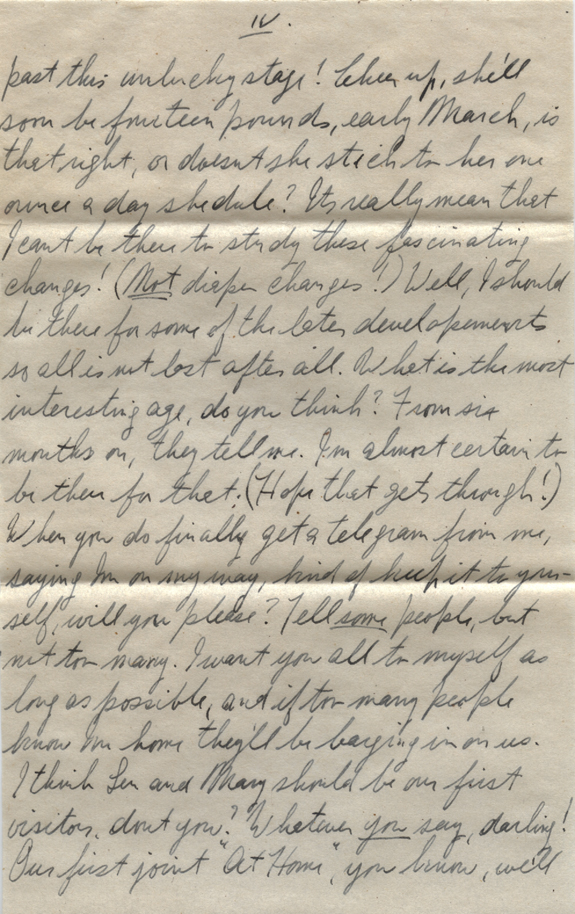 IV.
past this unlucky stage! Cheer up, she'll
soon be fourteen pounds, early March, is
that right, or doesn't she stick to her one
ounce a day shedule? Its really mean that
I cant be there to study these fascinating
changes! (Not diaper changes!) Well, I should
be there for some of the later developements
so all is not lost after all. What is the most
interesting age, do you think? From six
months on, they tell me. I'm almost certain to
be there for that. (Hope that gets through!)
When you do finally get a telegram from me,
saying Im on my way, kind of keep it to your-
self, will you please? Tell some people, but
not too many. I want you all to myself as
long as possible, and if too many people
know Im home they'll be barging in on us.
I think Len and Mary should be our first
visitors, dont you? Whatever you say, darling!
Our first joint "At Home", you know, we'll